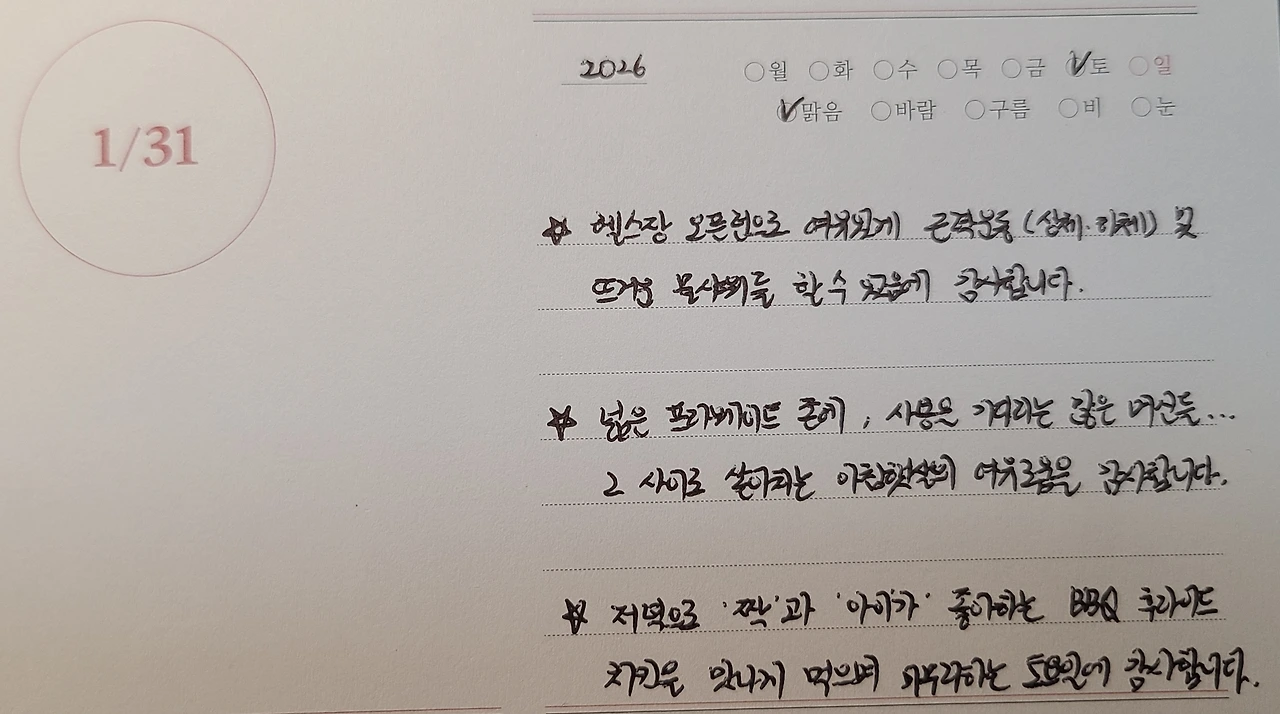 1/31
2026 ○월 ○화 ○수 ○목 ○금 ✓토 ○일
✓맑음 ○바람 ○구름 ○비 ○눈
☆ 헬스장 오픈런으로 여유있게 근력운동 (상체·하체) 및
뜨거운 물샤워를 할 수 있음에 감사합니다.
☆ 넓은 프라이베이트 존에, 사용을 기다리는 많은 머신들...
그 사이로 쏟아지는 아침햇살의 여유로움을 감사합니다.
☆ 저녁으로 '짝'과 '아이'가' 좋아하는 BBQ 후라이드
치킨을 맛나게 먹으며 마무리하는 토요일에 감사합니다.